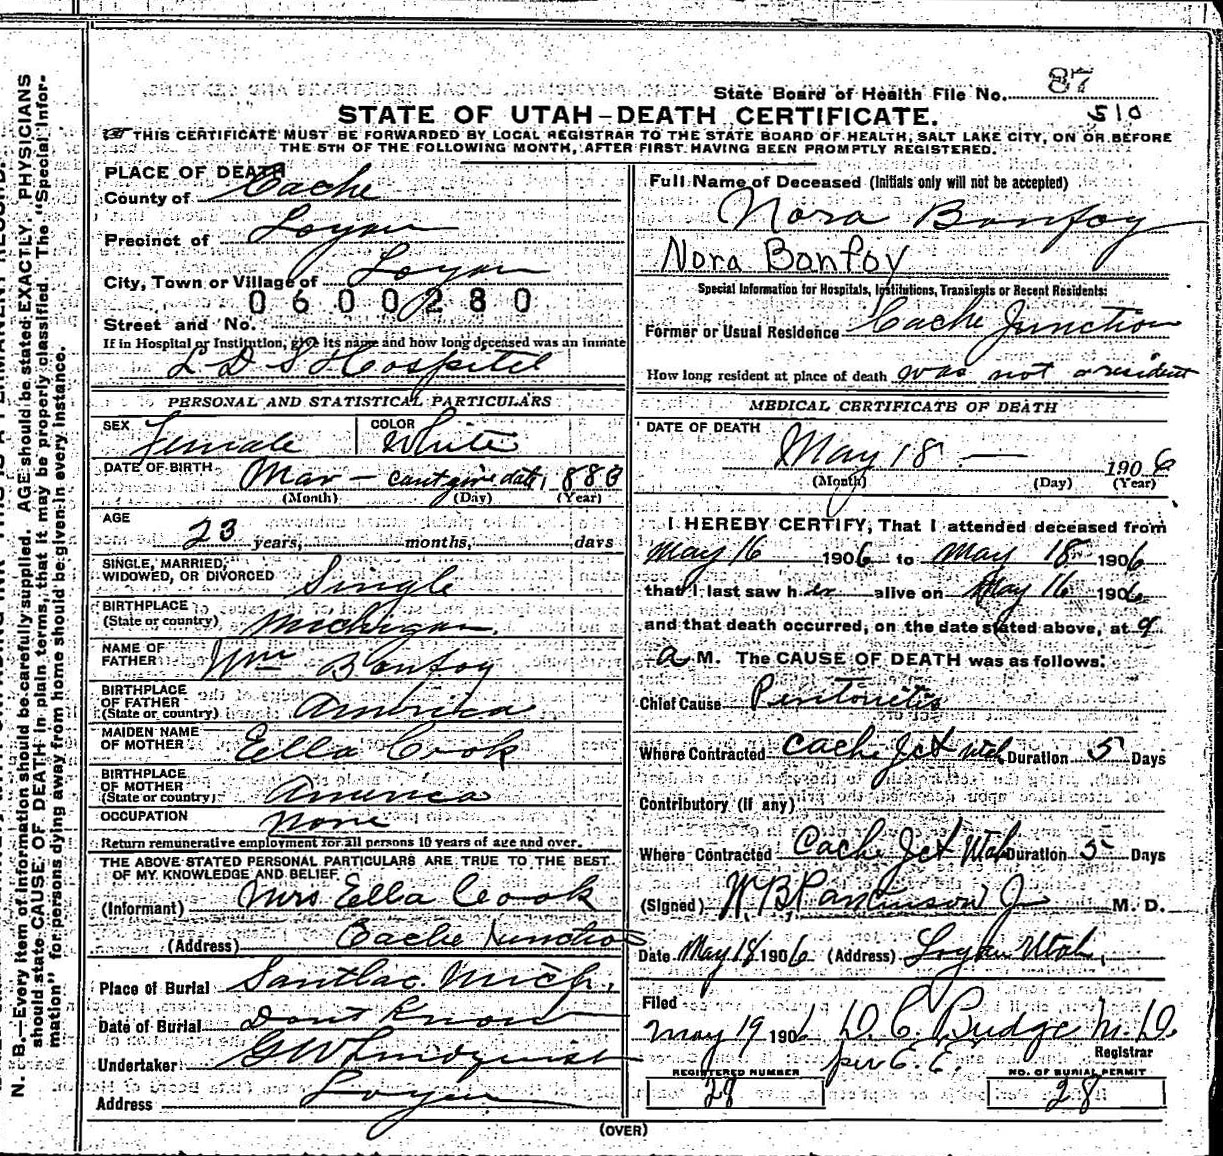 State Board of Health File No. 87
510
STATE OF UTAH-DEATH CERTIFICATE.
THIS CERTIFICATE MUST BE FORWARDED BY LOCAL REGISTRAR TO THE STATE BOARD OF HEALTH, SALT LAKE CITY, ON OR BEFORE
THE 5TH OF THE FOLLOWING MONTH, AFTER FIRST HAVING BEEN PROMPTLY REGISTERED.
PLACE OF DEATH
County of Cache
Precinct of Logan
City, Town or Village of Logan
0600280
Street and No.
If in Hospital or Institution, give its name and how long deceased was an inmate
L D S Hospital
PERSONAL AND STATISTICAL PARTICULARS
SEX Female COLOR White
DATE OF BIRTH Mar - cant give date, 1883
(Month) (Day) (Year)
AGE
23 years, months, days
SINGLE, MARRIED,
WIDOWED, OR DIVORCED Single
BIRTHPLACE
(State or country) Michigan.
NAME OF
FATHER Wm Bonfoy
BIRTHPLACE
OF FATHER
(State or country) America
MAIDEN NAME
OF MOTHER Eella Cook
BIRTHPLACE
OF MOTHER
(State or country) America
OCCUPATION None
Return remunerative employment for all persons 10 years of age and over.
THE ABOVE STATED PERSONAL PARTICULARS ARE TRUE TO THE BEST
OF MY KNOWLEDGE AND BELIEF
(Informant) Mrs Ella Cook
(Address) Cache Junction
Place of Burial Santlac Mich.
Date of Burial Dont Know
Undertaker G W Lindquist
Address Logan
Full Name of Deceased (Initials only will not be accepted)
Nora Bonfoy
Nora Bonfoy
Special Information for Hospitals, Institutions, Transients or Recent Residents:
Former or Usual Residence Cache Junction
How long resident at place of death was not a resident
MEDICAL CERTIFICATE OF DEATH
DATE OF DEATH
May 18 - 1906
(Month) (Day) (Year)
I HEREBY CERTIFY, That I attended deceased from
May 16 1906 to May 18 1906
that I last saw her alive on May 16 1906
and that death occurred, on the date stated above, at 9
a M. The CAUSE OF DEATH was as follows:
Chief Cause Peritonitis
Where Contracted Cache Jct Utah Duration 5 Days
Contributory (if any)
Where Contracted Cache Jct Utah Duration 5 Days
(Signed) W. B. Parkinson Jr M. D.
Date May 18 1906 (Address) Logan Utah,
Filed
May 19 1906 D. C. Budge M.D.
per E. E. Registrar
REGISTERED NUMBER
28
NO. OF BURIAL PERMIT
28
(OVER)
N. B.—Every item of information should be carefully supplied. AGE should be stated EXACTLY. PHYSICIANS
should state CAUSE OF DEATH in plain terms, that it may be properly classified. The "Special Infor-
mation" for persons dying away from home should be given in every instance.